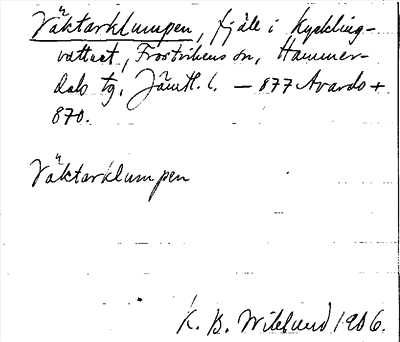 Väktarklumpen, fjäll i Kyckling-
vattnet, Frostvikens sn, Hammer-
dals tg, Jämtl. l. — 877 Avardo +
870.
Väktarklumpen
K. B. Wiklund 1906.